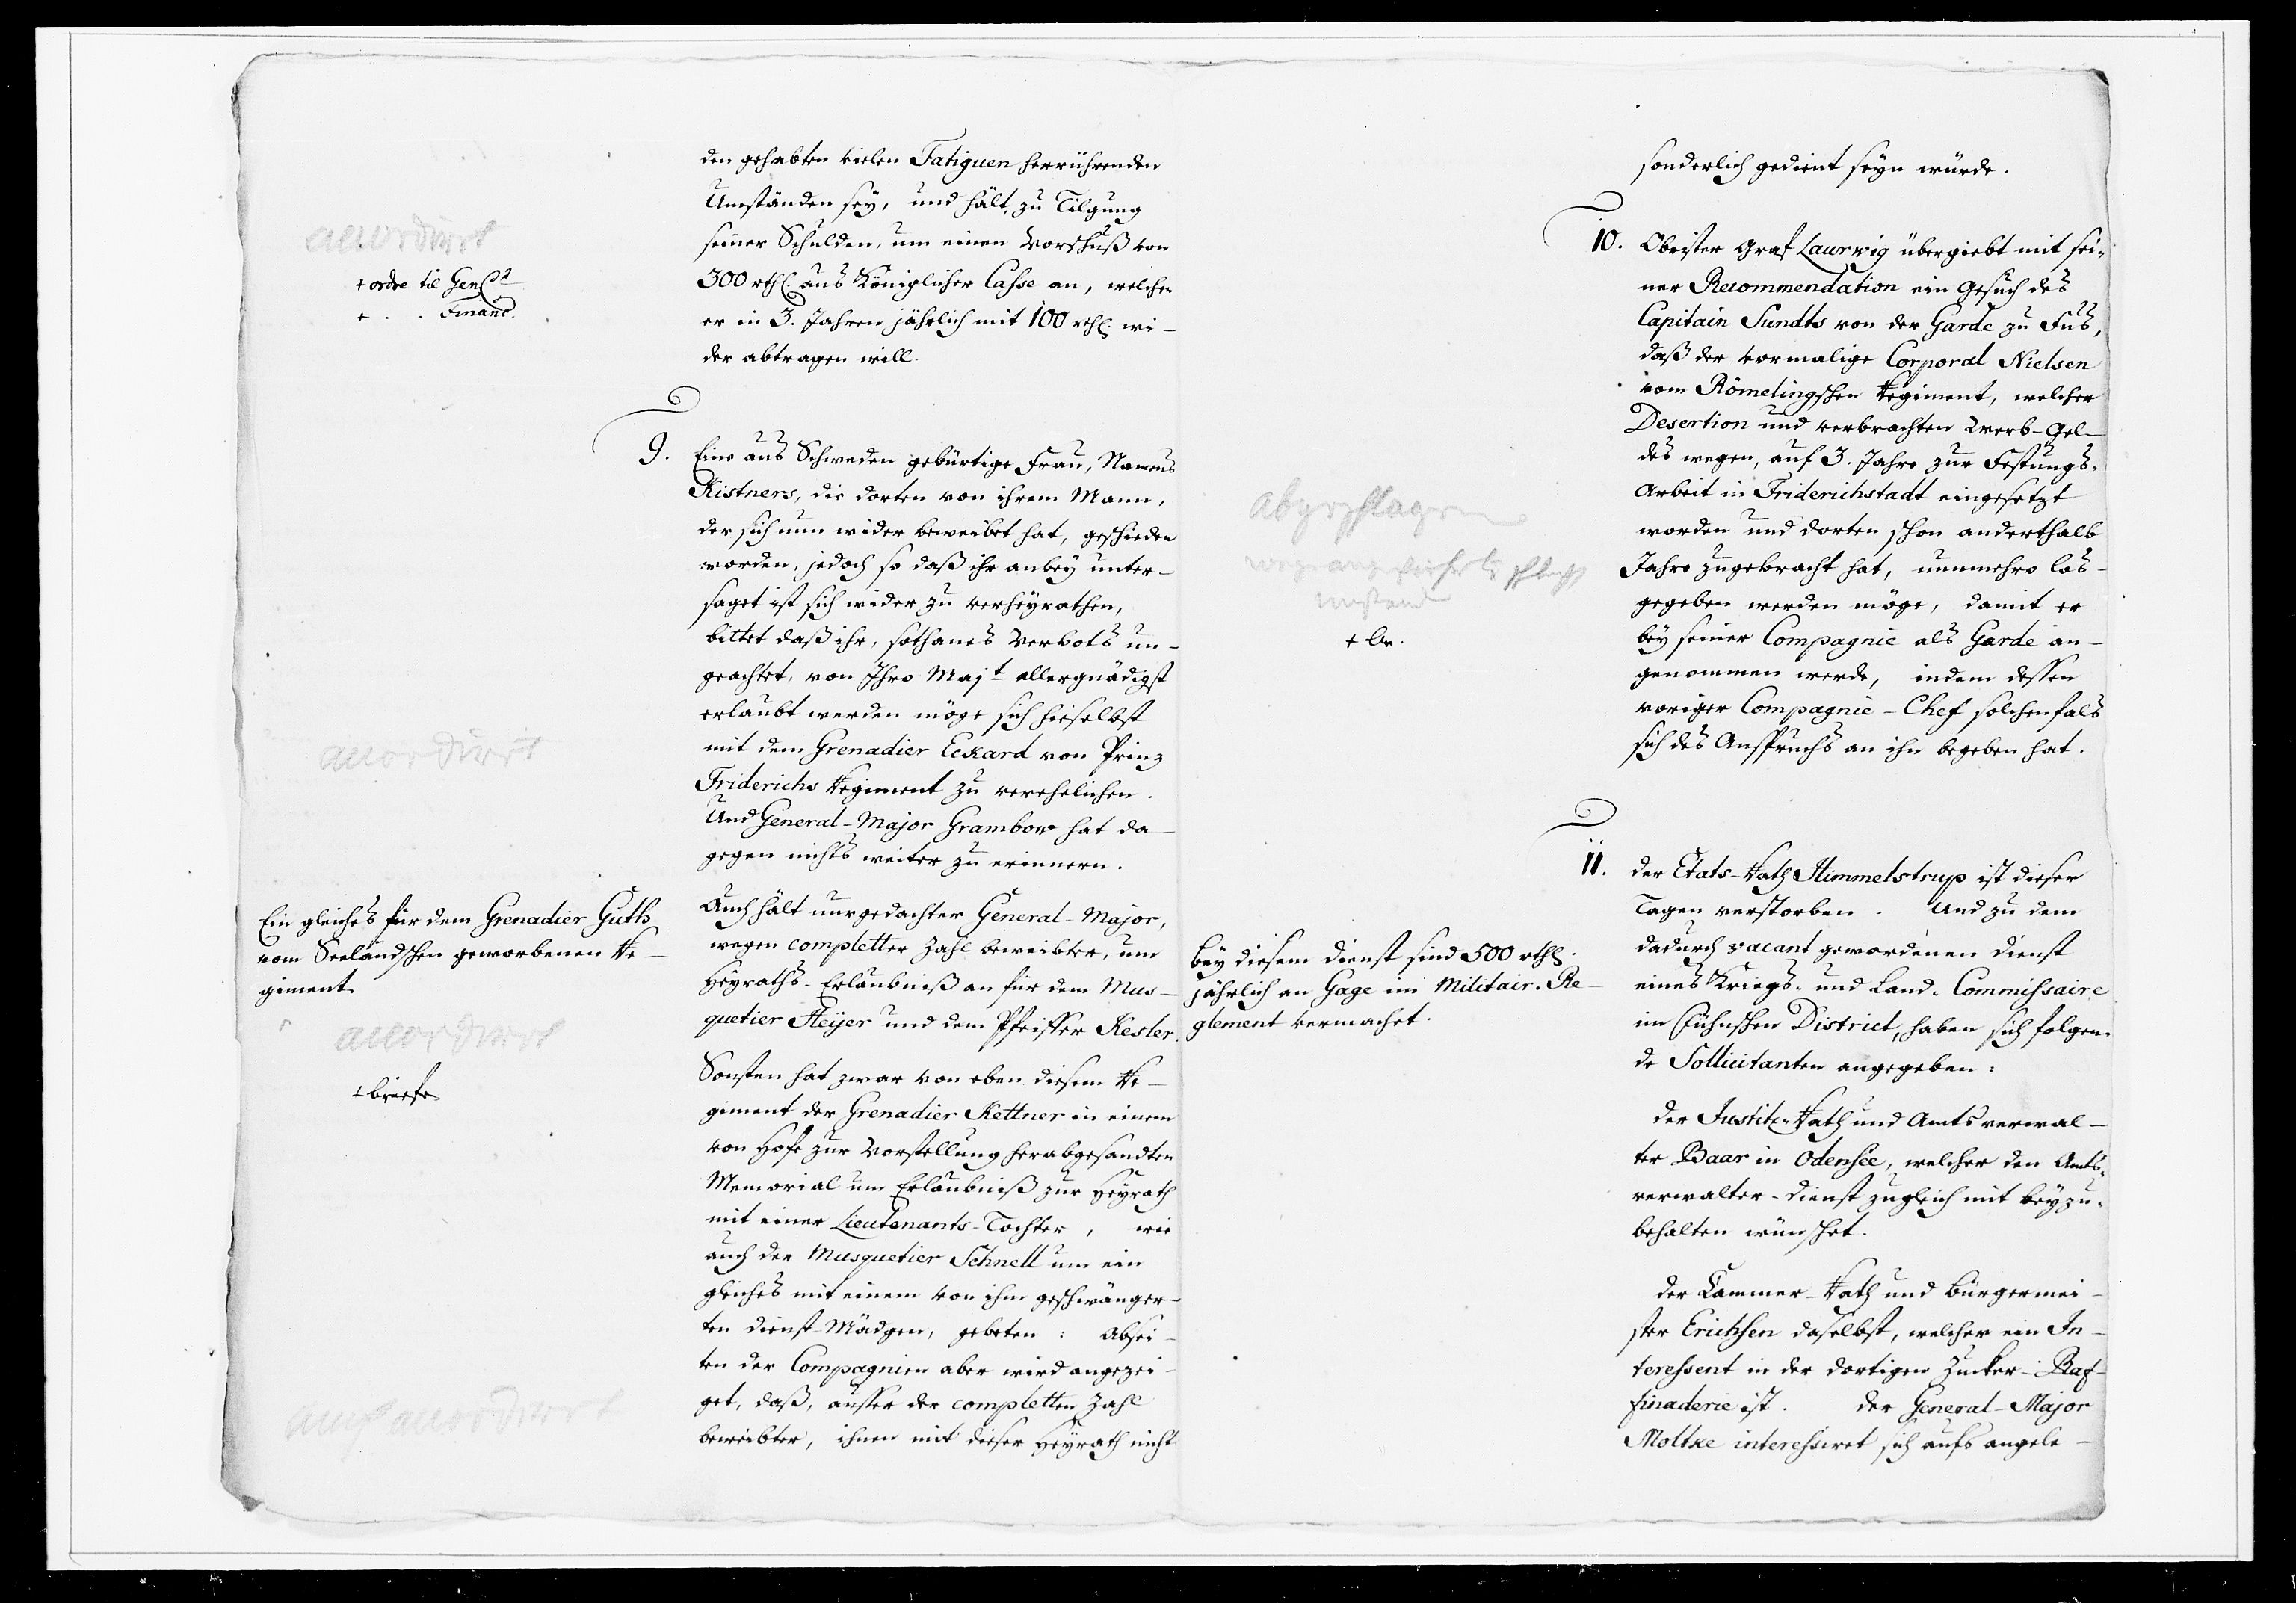 den gehabten vielen Fatiguen herrührenden
Umständen sey, und hält, zu Tilgung
seiner Schulden, um einen Vorschuß von
300 rthl. aus Königlicher Casse an, welchen
er in 3. Jahren jährlich mit 100 rthl. wi-
der abtragen will.
accordirt
+ ordre til Genl
+ . . Financ.
9. Eine aus Schweden gebürtige Frau, Namens
Kistners, die dorten von ihrem Mann,
der sich nun wider beweibet hat, geschieden
worden, jedoch so daß ihr anbey unter-
saget ist sich wider zu verheyrathen,
bittet daß ihr, sothanes Verbots un-
geachtet, von Ihro Majt allergnädigst
erlaubt werden möge sich hieselbst
mit dem Grenadier Eckard von Prinz
Friderichs Regiment zu verehelichen.
Und General-Major Grambow hat da-
gegen nichts weiter zu erinnern.
accordirt
Auch hält nurgedachter General-Major,
wegen completter Zahl beweibter, um
Heyraths-Erlaubniß an für dem Mus-
quetier Heyer und dem Pfeiffer Kesler.
Ein gleiches für dem Grenadier Guth
vom Seeländschen geworbenen Re-
giment.
accordirt
+ briefe
Sonsten hat zwar von eben diesem Re-
giment der Grenadier Kettner in einem
von Hofe zur Vorstellung herabgesandten
Memorial um Erlaubniß zur Heyrath
mit einer Lieutenants-Tochter, wie
auch der Musquetier Schnell um ein
gleiches mit einem von ihm geschwänger-
ten Dienst-Mädgen, gebeten: Absei-
ten der Compagnien aber wird angezei-
get, daß, ausser der completten Zahl
beweibter, ihnen mit dieser Heyrath nicht
auch accordirt
sonderlich gedient seyn würde.
10. Obrister Graf Laurwig übergiebt mit sei-
ner Recommendation ein Gesuch des
Capitain Sundts von der Garde zu Fus,
daß der vormalige Corporal Nielsen
vom Römelingschen Regiment, welcher
Desertion und verbrachten Werb-Gel-
des wegen, auf 3. Jahre zur Festungs-
Arbeit in Friderichstadt eingesetzt
worden und dorten schon anderthalb
Jahre zugebracht hat, nunmehro los-
gegeben werden möge, damit er
bey seiner Compagnie als Garde an-
genommen werde, indem dessen
voriger Compagnie-Chef solchenfals
sich des Anspruchs an ihn begeben hat.
abgeschlagen
umstand
+ br.
11. Der Etats-Rath Himmelstrup ist dieser
Tagen verstorben. Und zu dem
dadurch vacant gewordenen Dienst
eines Kriegs- und Land-Commissaire
im Fühnschen District, haben sich folgen-
de Sollicitanten angegeben:
Bey diesem Dienst sind 500 rthl.
jährlich an Gage im Militair-Re-
glement vermachet.
Der Justitz-Rath und Amtsverwal-
ter Baar in Odensee, welcher den Amts-
verwalter-Dienst zugleich mit beyzu-
behalten wünschet.
Der Cammer-Rath und Bürgermei-
ster Erichsen daselbst, welcher ein In-
teressent in der dortigen Zucker-Raf-
finaderie ist. Der General-Major
Moltke interessiret sich aufs angele-